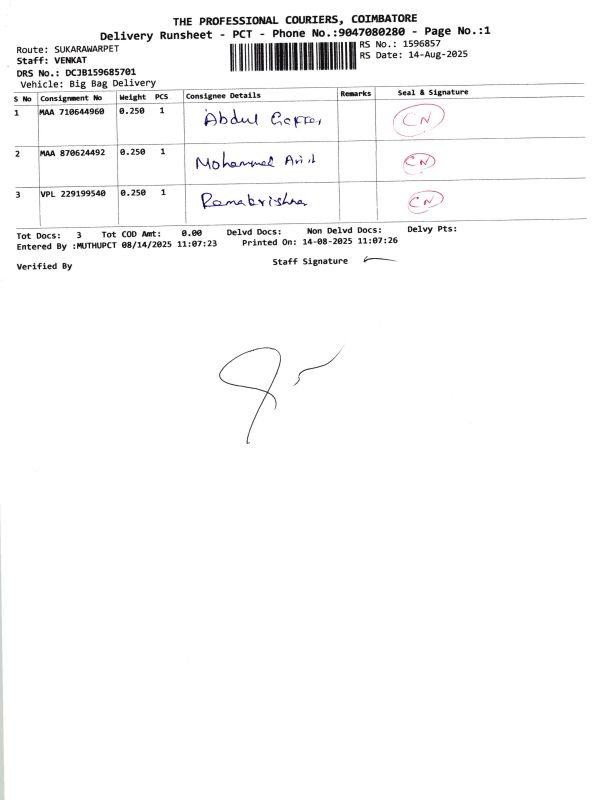 THE PROFESSIONAL COURIERS, COIMBATORE
Delivery Runsheet - PCT - Phone No.:9047080280 - Page No.:1
Route: SUKARAWARPET
RS No.: 1596857
Staff: VENKAT
RS Date: 14-Aug-2025
DRS No.: DCJB159685701
Vehicle: Big Bag Delivery
S No Consignment No Weight PCS Consignee Details Remarks Seal & Signature
1 MAA 710644960 0.250 1 Abdul CN
2 MAA 870624492 0.250 1 Mohammed CN
3 VPL 229199540 0.250 1 Ramakrishna CN
Tot Docs: 3 Tot COD Amt: 0.00 Delvd Docs: Non Delvd Docs: Delvy Pts:
Entered By :MUTHUPCT 08/14/2025 11:07:23 Printed On: 14-08-2025 11:07:26
Verified By Staff Signature